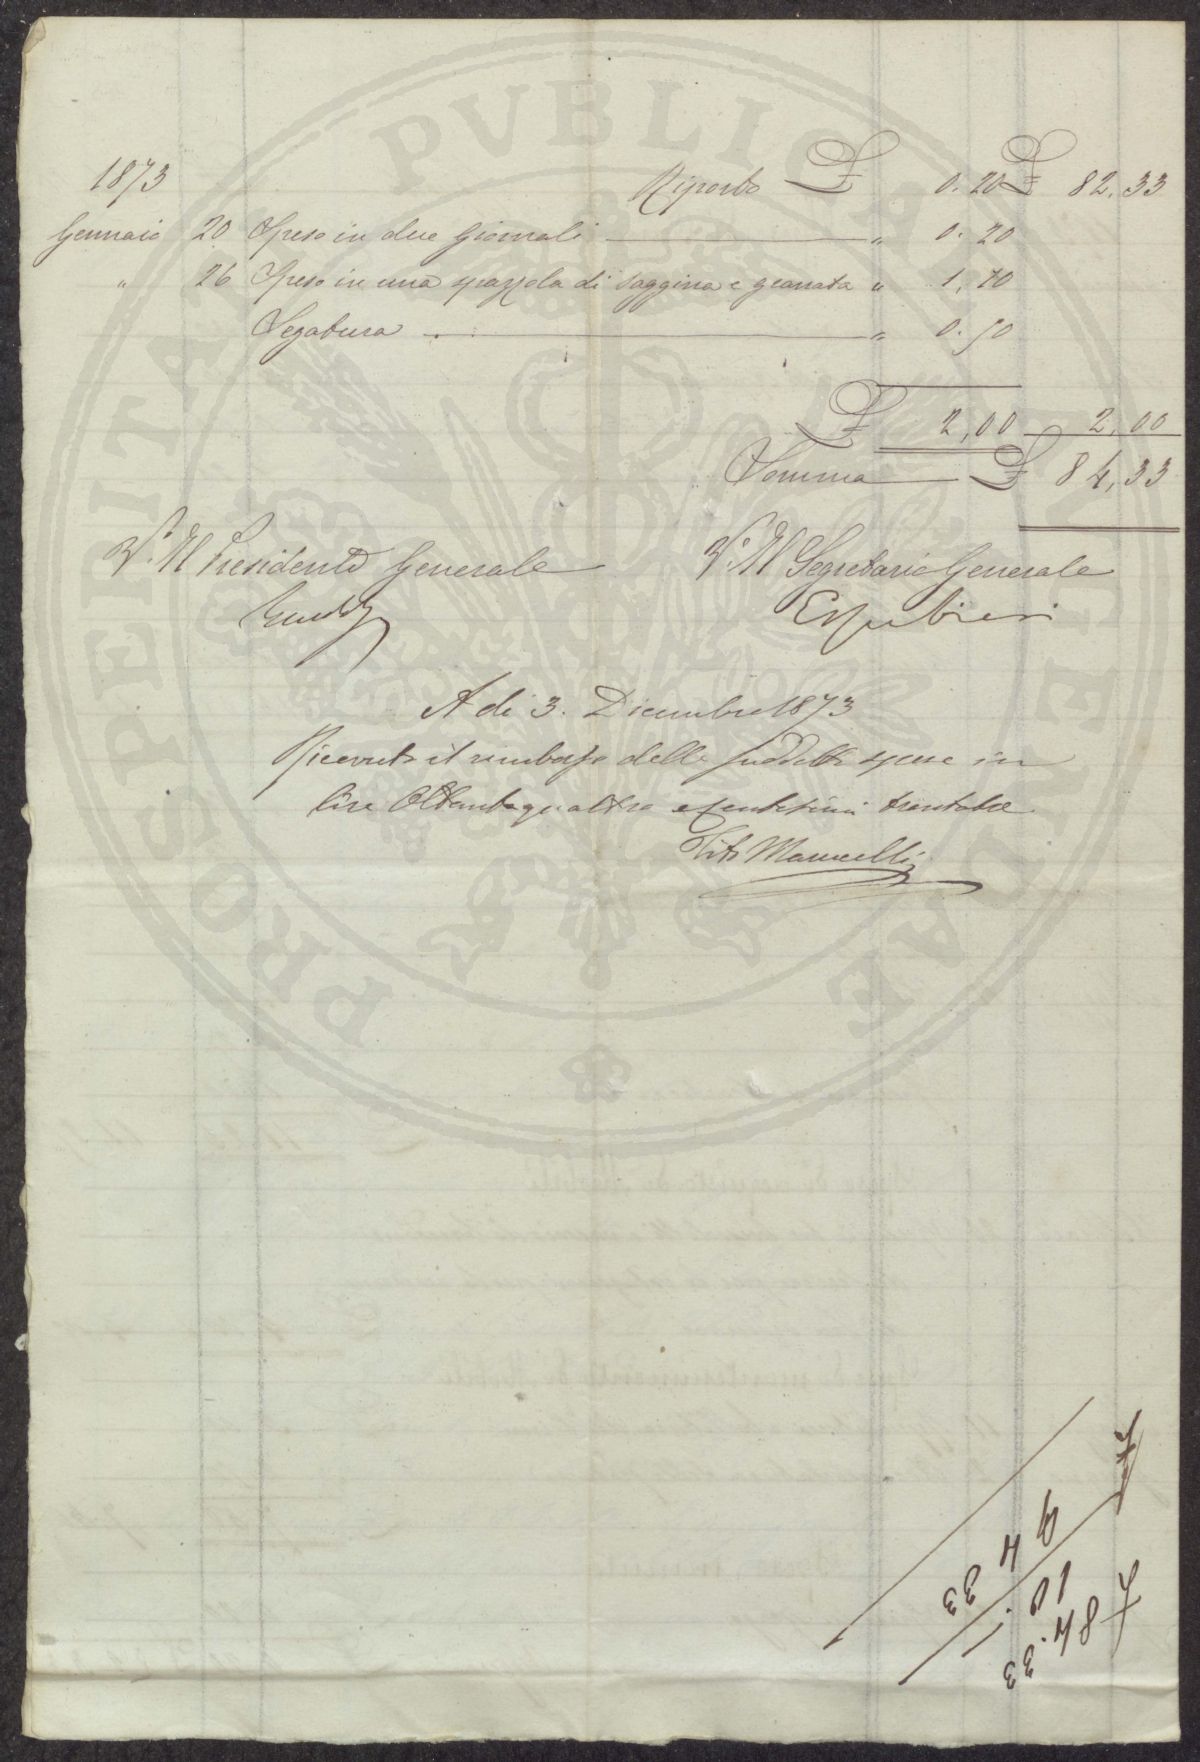 1873 Riporto £ 0.20 £ 82.33
Gennaio 20 Spese in due Giornali " 0.20
" 26 Spese in una spazzola di saggina e granata " 1,10
Segatura " 0.50
£ 2,00 2,00
Somma £ 84,33
V.° Il Presidente Generale V.° Il Segretario Generale
A di 3. Dicembre 1873
Ricevuto il rimborso delle suddette spese in
lire Ottantaquattro e centesimi trentatre
Tito Marucelli
£ 84.33
10.
94 33
PROSPERITATI PVBLICAE AVGENDAE